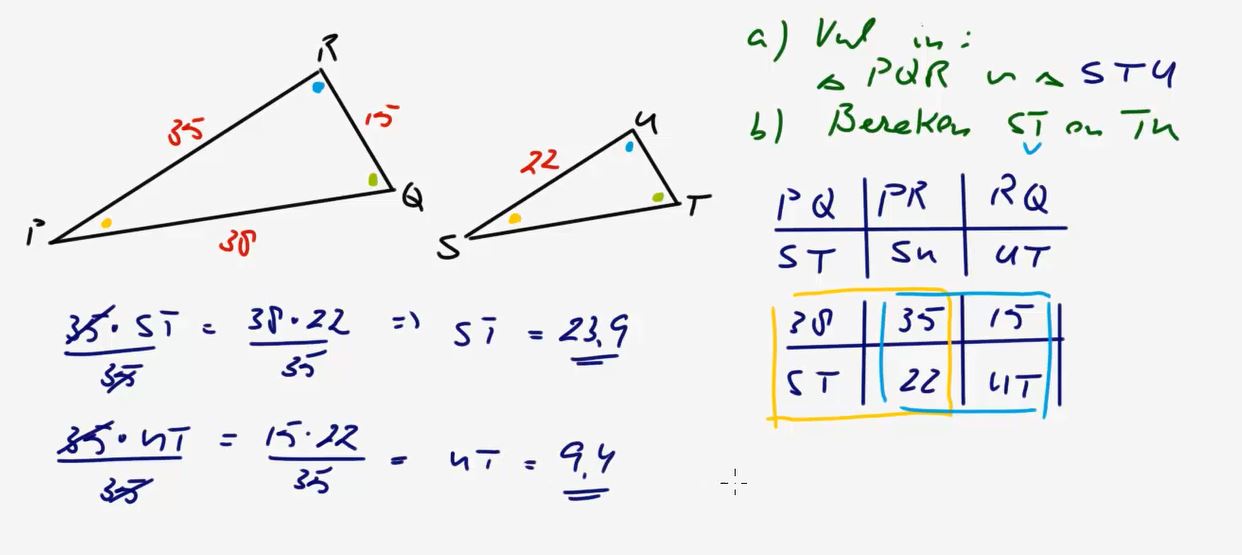 R
35
15
P
Q
38
U
22
S
T
a) Vul in:
△ PQR ~ △ STU
b) Bereken ST en TU
PQ | PR | RQ
ST | SU | UT
38 | 35 | 15
ST | 22 | UT
35 · ST / 35 = 38 · 22 / 35 => ST = 23,9
35 · UT / 35 = 15 · 22 / 35 = UT = 9,4